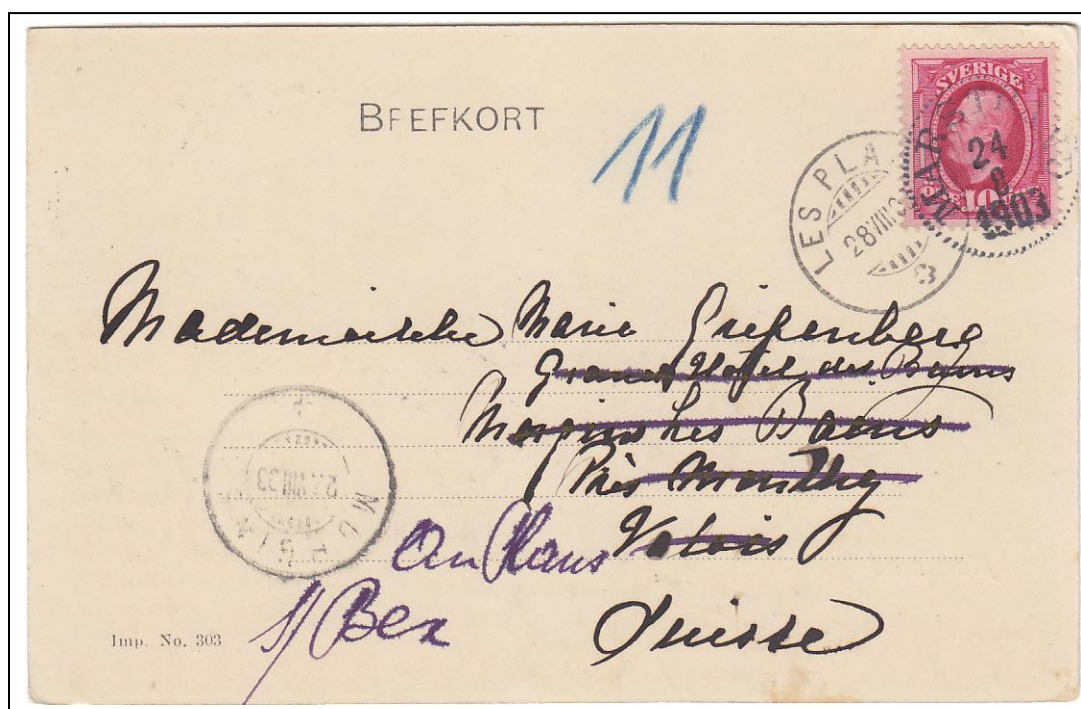 BREFKORT
11
SVERIGE
10
24
8
1903
LES PLA
28 VIII 03
Mademoiselle Marie Gripenberg
Grand Hôtel des Bains
Morgins les Bains
Près Monthey
Valais
Suisse
MORGINS
VIII.03
Aux Plans
s/ Bex
Imp. No. 303